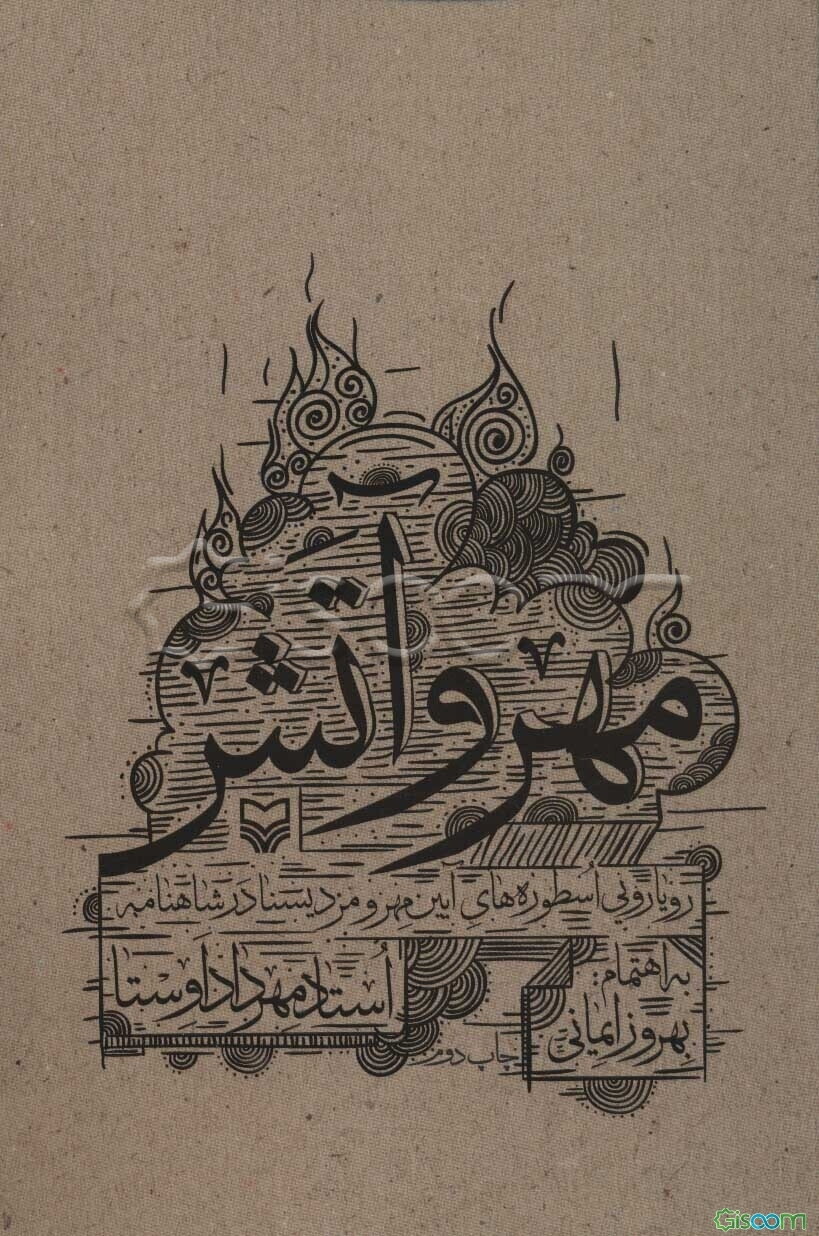 مهر و آتش
رویارویی اُسطوره‌هایِ آیین مِهر و مزدیسنا دَر شاهنامه
اُستاد مِهرداد اَوِستا
به اهتمام:
بِهروز ایمانی
چاپ دوم
Gisoom